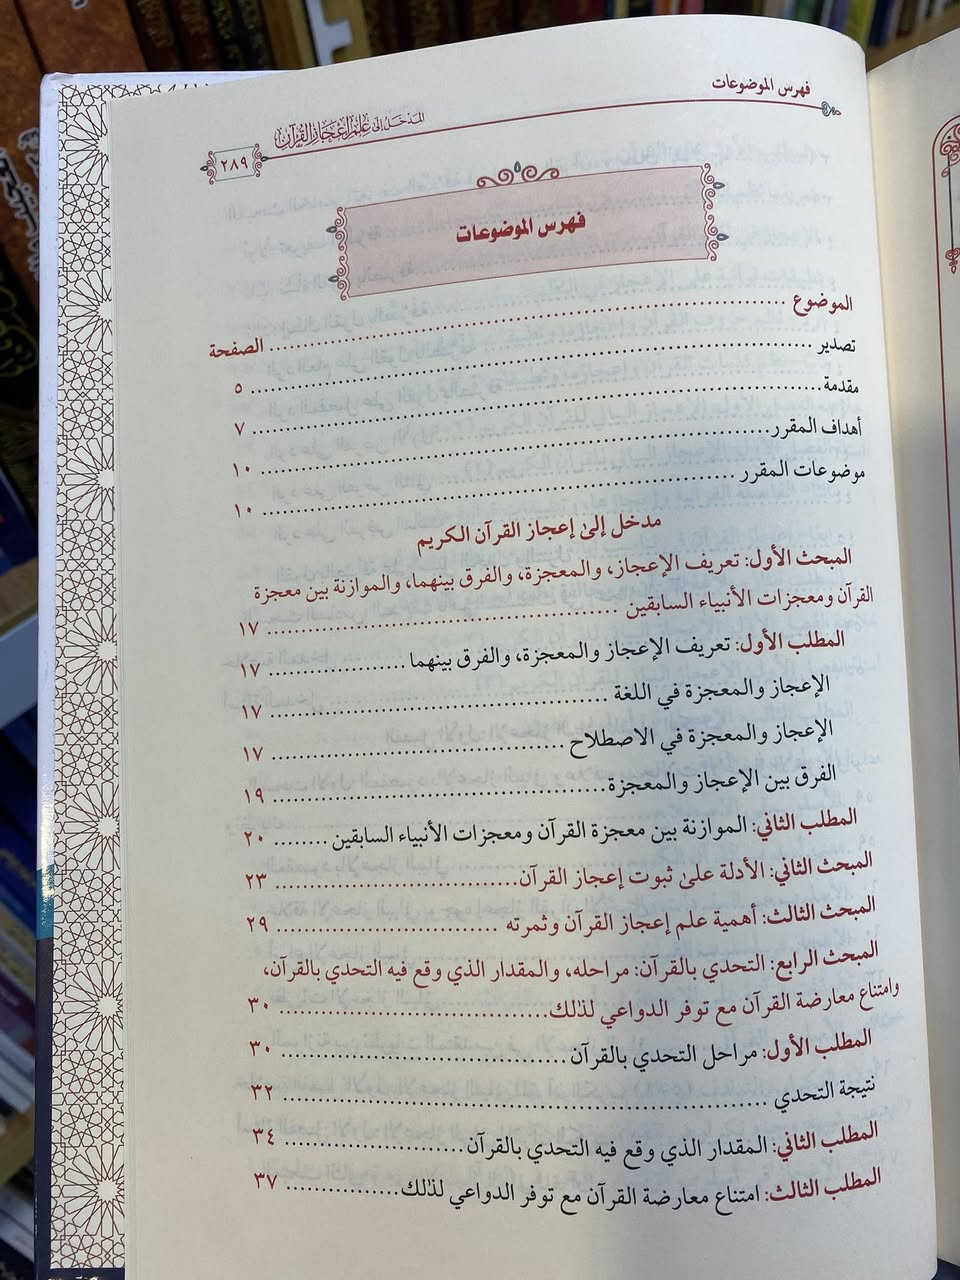 فهرس الموضوعات
المدخل إلى علم إعجاز القرآن
٢٨٩
فهرس الموضوعات
الموضوع ........ الصفحة
تصدير ........ ٥
مقدمة ........ ٧
أهداف المقرر ........ ١٠
موضوعات المقرر ........ ١٠
مدخل إلىٰ إعجاز القرآن الكريم
المبحث الأول: تعريف الإعجاز، والمعجزة، والفرق بينهما، والموازنة بين معجزة
القرآن ومعجزات الأنبياء السابقين ........ ١٧
المطلب الأول: تعريف الإعجاز والمعجزة، والفرق بينهما ........ ١٧
الإعجاز والمعجزة في اللغة ........ ١٧
الإعجاز والمعجزة في الاصطلاح ........ ١٧
الفرق بين الإعجاز والمعجزة ........ ١٩
المطلب الثاني: الموازنة بين معجزة القرآن ومعجزات الأنبياء السابقين ........ ٢٠
المبحث الثاني: الأدلة علىٰ ثبوت إعجاز القرآن ........ ٢٣
المبحث الثالث: أهمية علم إعجاز القرآن وثمرته ........ ٢٩
المبحث الرابع: التحدي بالقرآن: مراحله، والمقدار الذي وقع فيه التحدي بالقرآن،
وامتناع معارضة القرآن مع توفر الدواعي لذلك ........ ٣٠
المطلب الأول: مراحل التحدي بالقرآن ........ ٣٠
نتيجة التحدي ........ ٣٢
المطلب الثاني: المقدار الذي وقع فيه التحدي بالقرآن ........ ٣٤
المطلب الثالث: امتناع معارضة القرآن مع توفر الدواعي لذلك ........ ٣٧